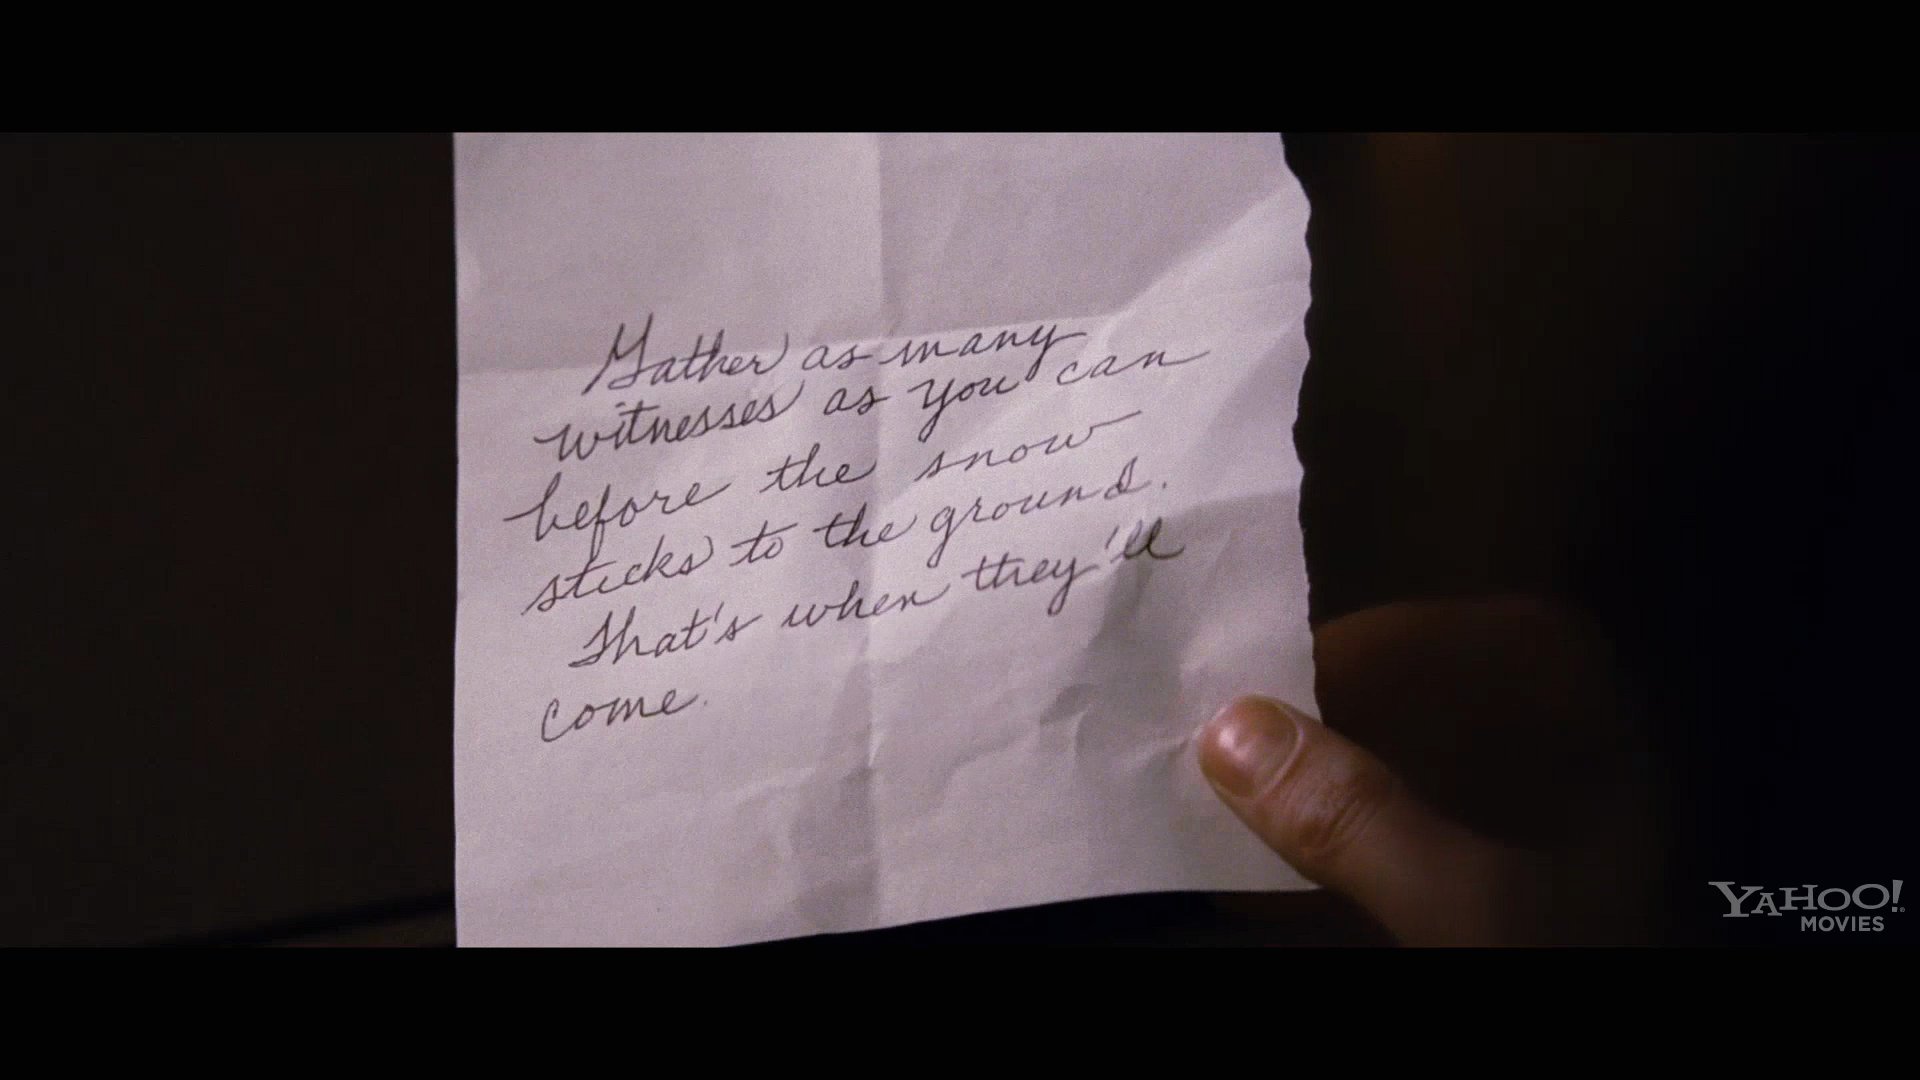 Gather as many
witnesses as you can
before the snow
sticks to the ground.
That's when they'll
come.
YAHOO!
MOVIES